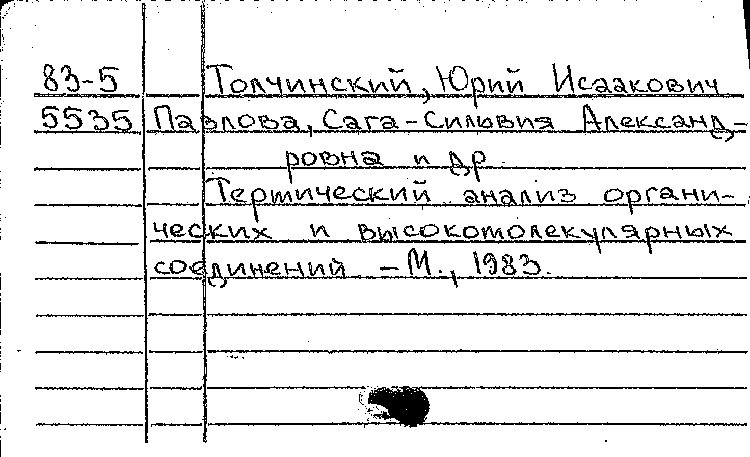 83-5 Толчинский, Юрий Исаакович
5535 Павлова, Сага-Сильвия Александ-
ровна и др.
Термический анализ органи-
ческих и высокомолекулярных
соединений – М., 1983.